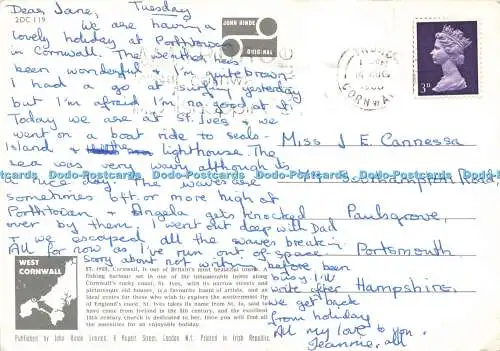 Dear Jane, Tuesday
2DC119
We are having a
lovely holiday at Porthtowan
in Cornwall. The weather has
been wonderful & I'm quite brown.
I had a go at surfing yesterday
but I'm afraid I'm no good at it.
Today we are at St. Ives & we
went on a boat ride to seals
Island & the lighthouse. The
sea was very wavy although its
a nice day. The waves are
sometimes 6ft. or more high at
Porthtowan & Angela gets knocked
over by them. I went out deep with Dad
& we escaped all the waves breaking.
All for now as I've run out of space.
Sorry about not writing before been
busy. I'll
write after
we get back
from
holiday
All my love to you.
Jeannie, all
JOHN HINDE
ORIGINAL
TRURO
CORNWALL
3D
Miss J E Cannessa
Southampton Road
Paulsgrove,
Portsmouth
Hampshire,
Dodo-Postcards Dodo-Postcards Dodo-Postcards Dodo-Postcards
WEST
CORNWALL
ST. IVES, Cornwall, is one of Britain's most beautiful towns. A
fishing harbour set in one of the innumerable inlets along
Cornwall's rocky coast, St. Ives, with its narrow streets and
picturesque old houses, is a favourite haunt of artists, and an
ideal centre for those who wish to explore the westernmost tip
of England's coast. St. Ives takes its name from St. Ia, said to
have come from Ireland in the 5th century, and the excellent
15th century church is dedicated to her. Here you will find all
the amenities for an enjoyable holiday.
Published by John Hinde Limited, 4 Rupert Street, London W.1. Printed in Irish Republic.